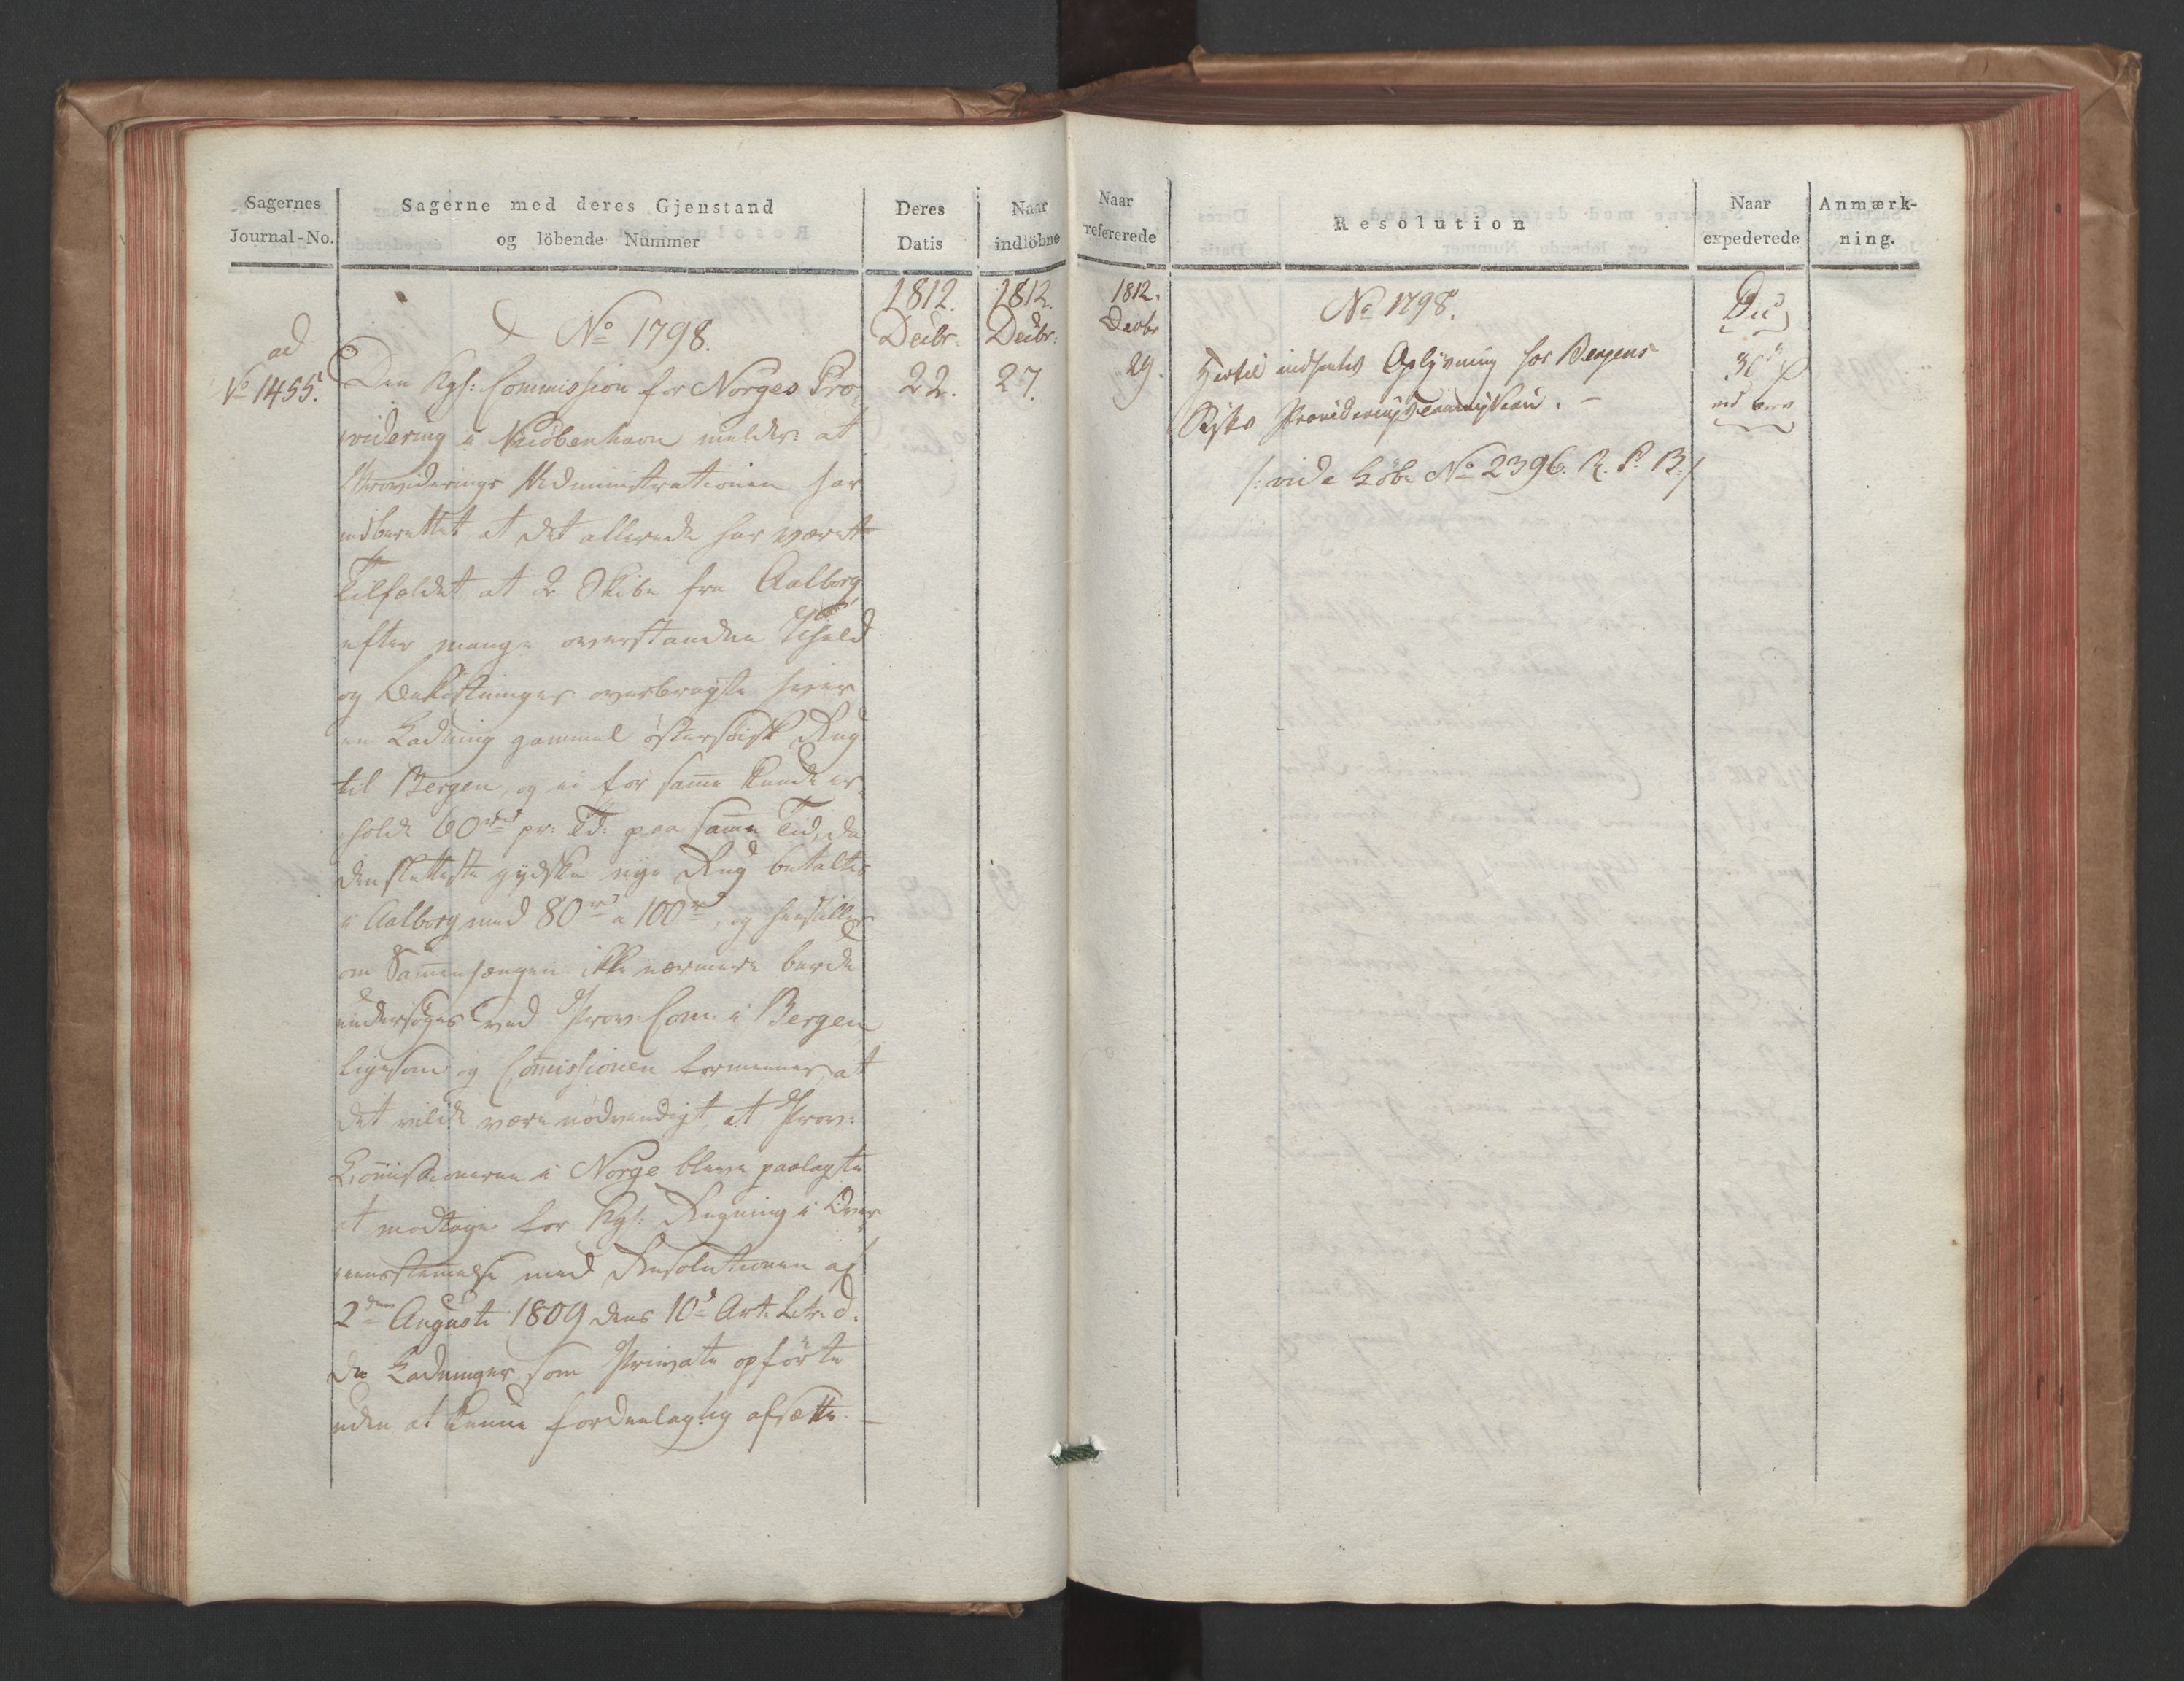 Sagernes
Journal-No.
Sagerne med deres Gjenstand
og löbende Nummer
Deres
Datis
Naar
indlöbne
ad
No 1455.
No 1798.
1812.
Decbr.
22.
1812.
Decbr.
27.
Den Kgl: Commission for Norges Pro-
videring i Kiöbenhavn melder: at
Providerings Administrationen har
indberettet at det allerede har været
Tilfældet at 2 Skibe fra Aalborg
efter mange overstandne Uheld
og Bekostninger overbragte hver
en Ladning gammel östersöisk Rug
til Bergen, og ei for samme kunde er-
holde 60 rd pr: Td: paa samme Tid, da
den sletteste jydske nye Rug betaltes
i Aalborg med 80 rd a 100 rd, og henstilles
om Sammenhængen ikke nærmere burde
undersöges ved Prov: Com: i Bergen
ligesom og Commissionen formener, at
det vilde være nödvendigt, at Prov:
Commissionerne i Norge bleve paalagte
at modtage for Kgl: Regning i Over-
eensstemmelse med Resolutionen af
2den Augusti 1809 dens 10d Art. Litr. d.
de Ladninger, som Private opförte
uden at kunne fordeelagtig afsætte. —
Naar
refererede
Resolution
Naar
expederede
Anmærk-
ning.
1812.
Decbr
29.
No 1798.
Hertil indhentes Oplysning hos Bergens
Stifts Provideringscommission. —
/: vide Löbe No 2396. R. P. B:/
30
ved Brev